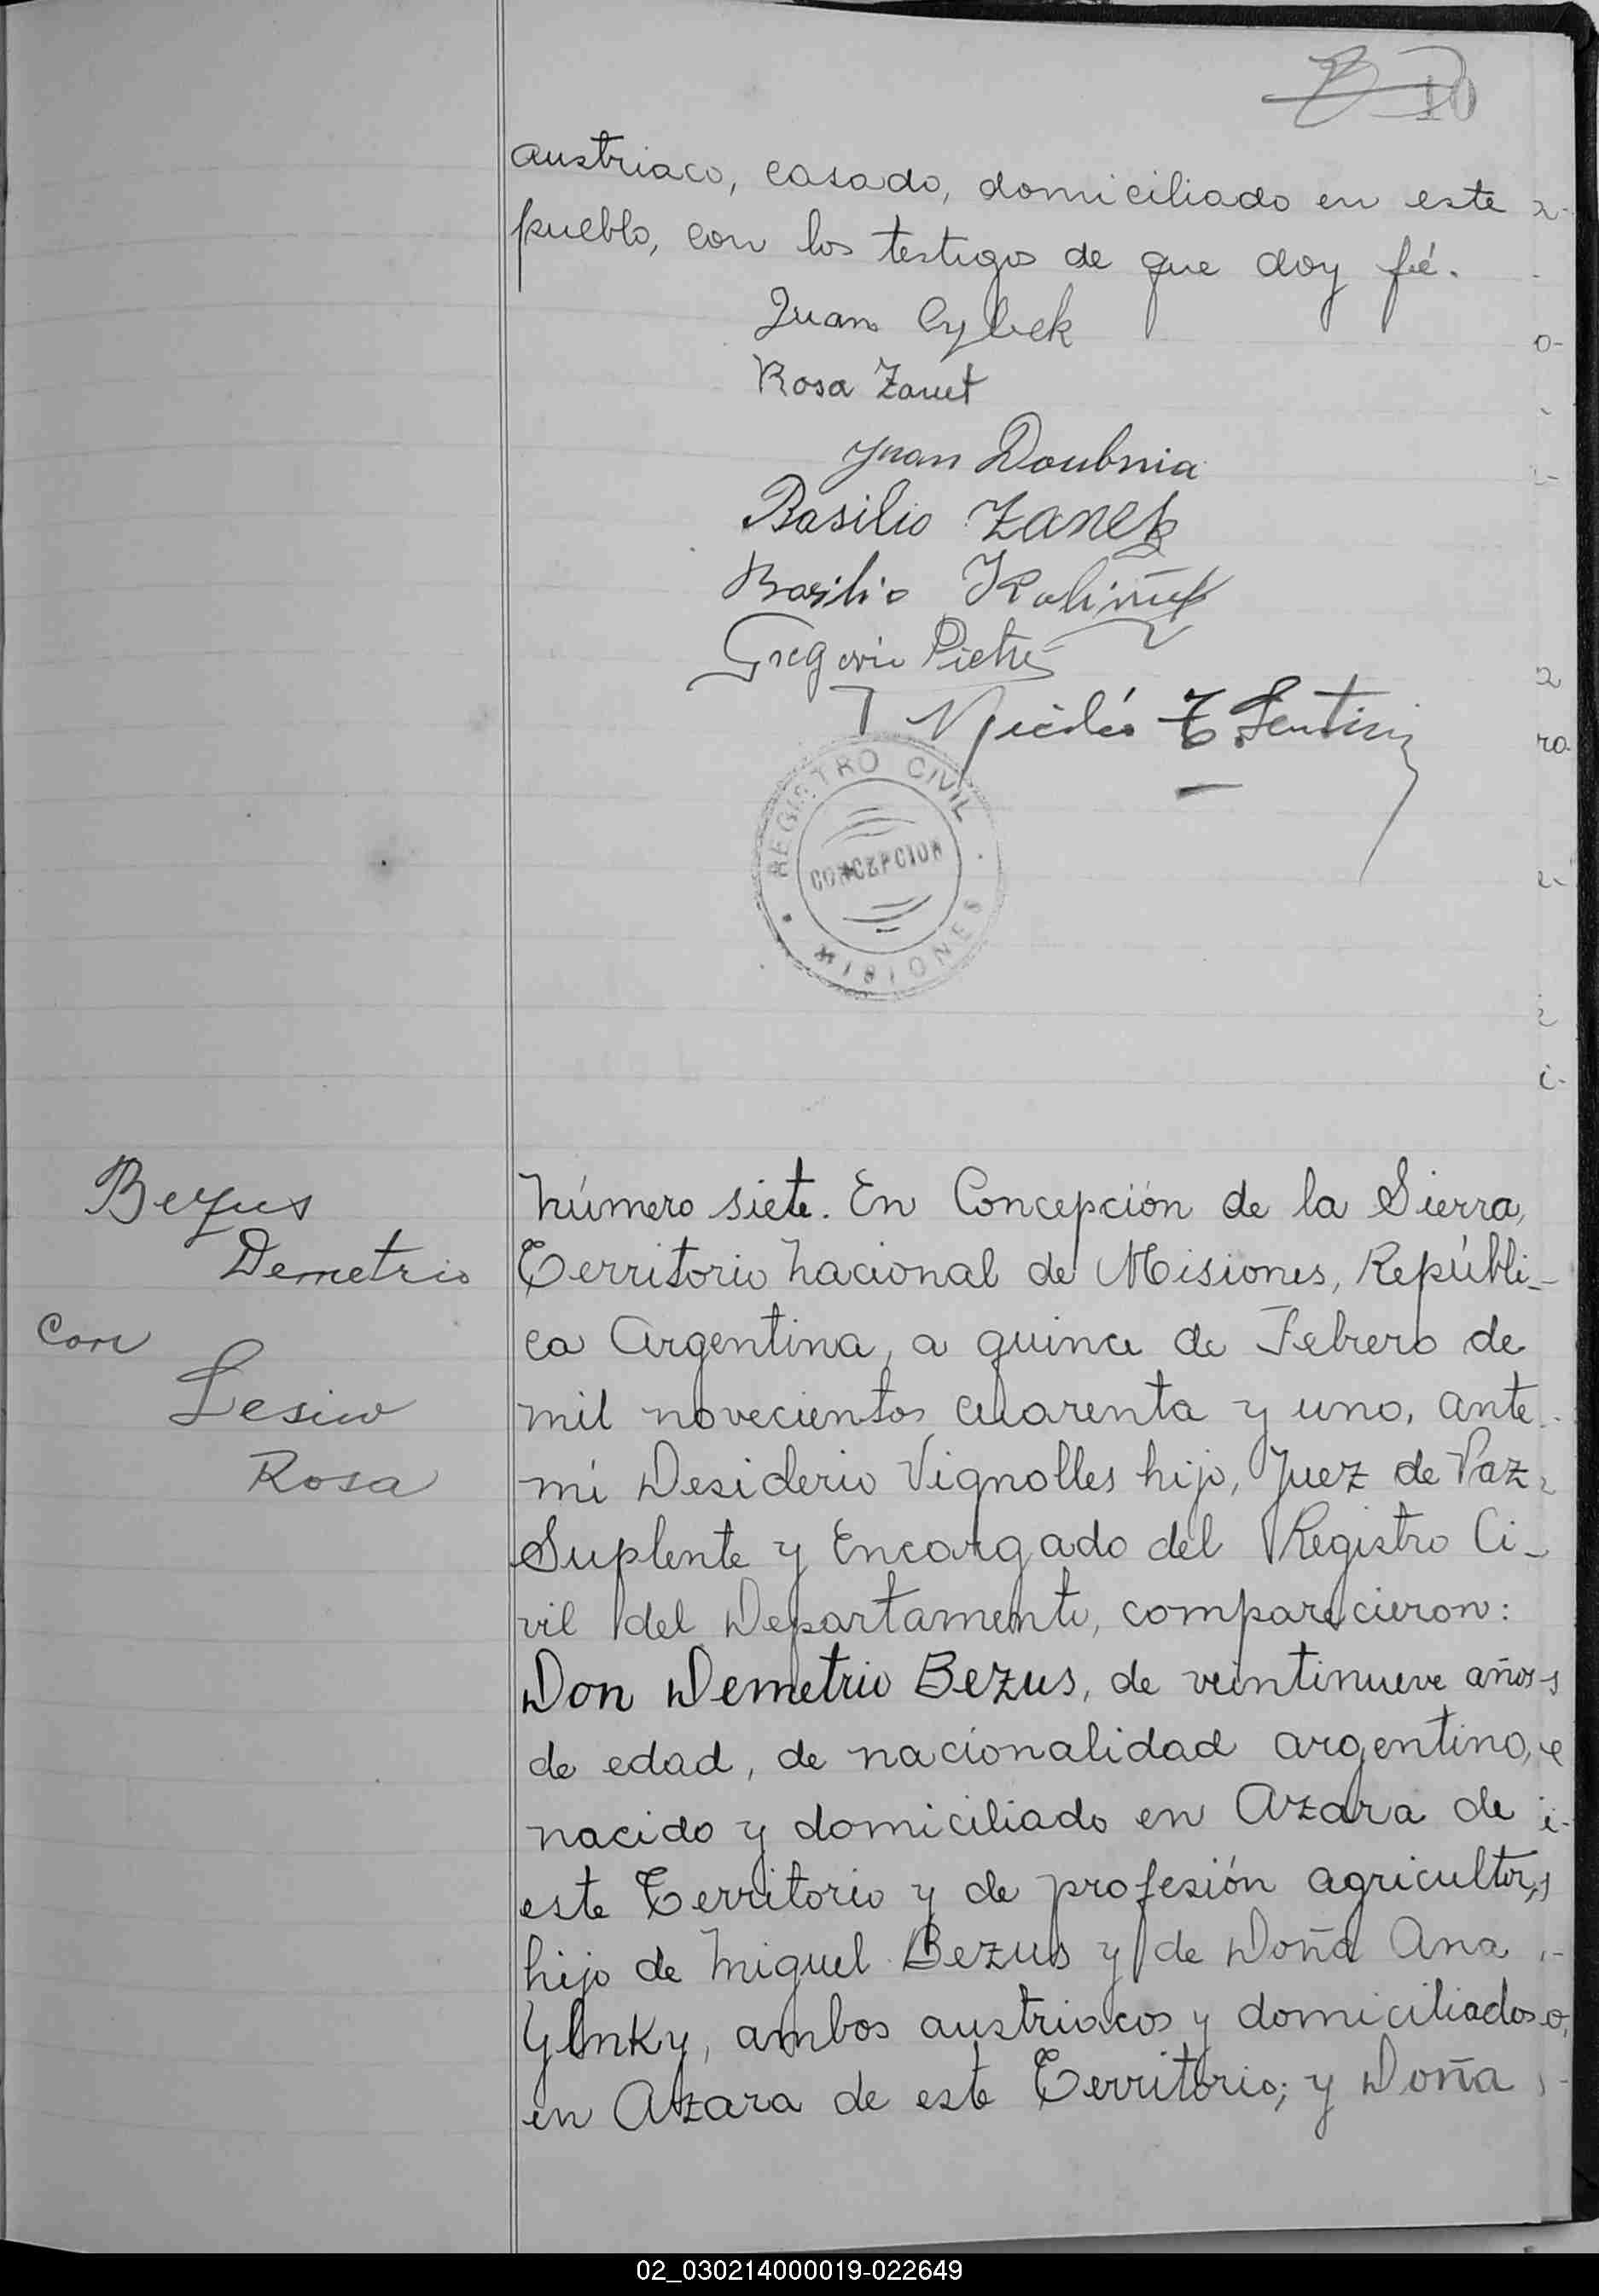 10
austriaco, casado, domiciliado en este
pueblo, con los testigos de que doy fé.
Juan Cybek
Rosa Zanet
Juan Doubnia
Basilio Zanek
Basilio
Gregorio
Nicolás
REGISTRO CIVIL
CONCEPCION
MISIONES
Bezus
Demetrio
Con
Lesiw
Rosa
Número siete. En Concepción de la Sierra,
Territorio Nacional de Misiones, Repúbli-
ca Argentina, a quince de Febrero de
mil novecientos cuarenta y uno, ante
mí Desiderio Vignolles hijo, Juez de Paz
Suplente y Encargado del Registro Ci-
vil del Departamento, comparecieron:
Don Demetrio Bezus, de veintinueve años
de edad, de nacionalidad argentino,
nacido y domiciliado en Azara de
este Territorio y de profesión agricultor,
hijo de Miguel Bezus y de Doña Ana
Ylnky, ambos austriacos y domiciliados
en Azara de este Territorio; y Doña
02_030214000019-022649